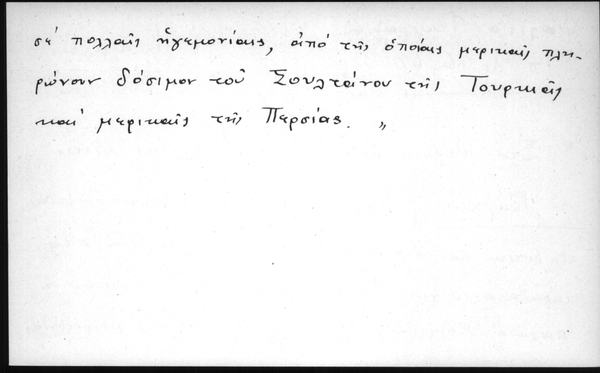 σὲ πολλαῖς ἡγεμονίαις, ἀπὸ τῆς ὁποίαις μερικαῖς πλη-
ρώνουν δόσιμον τοῦ Σουλτάνου τῆς Τουρκιᾶς
καὶ μερικαῖς τῆς Περσίας. „